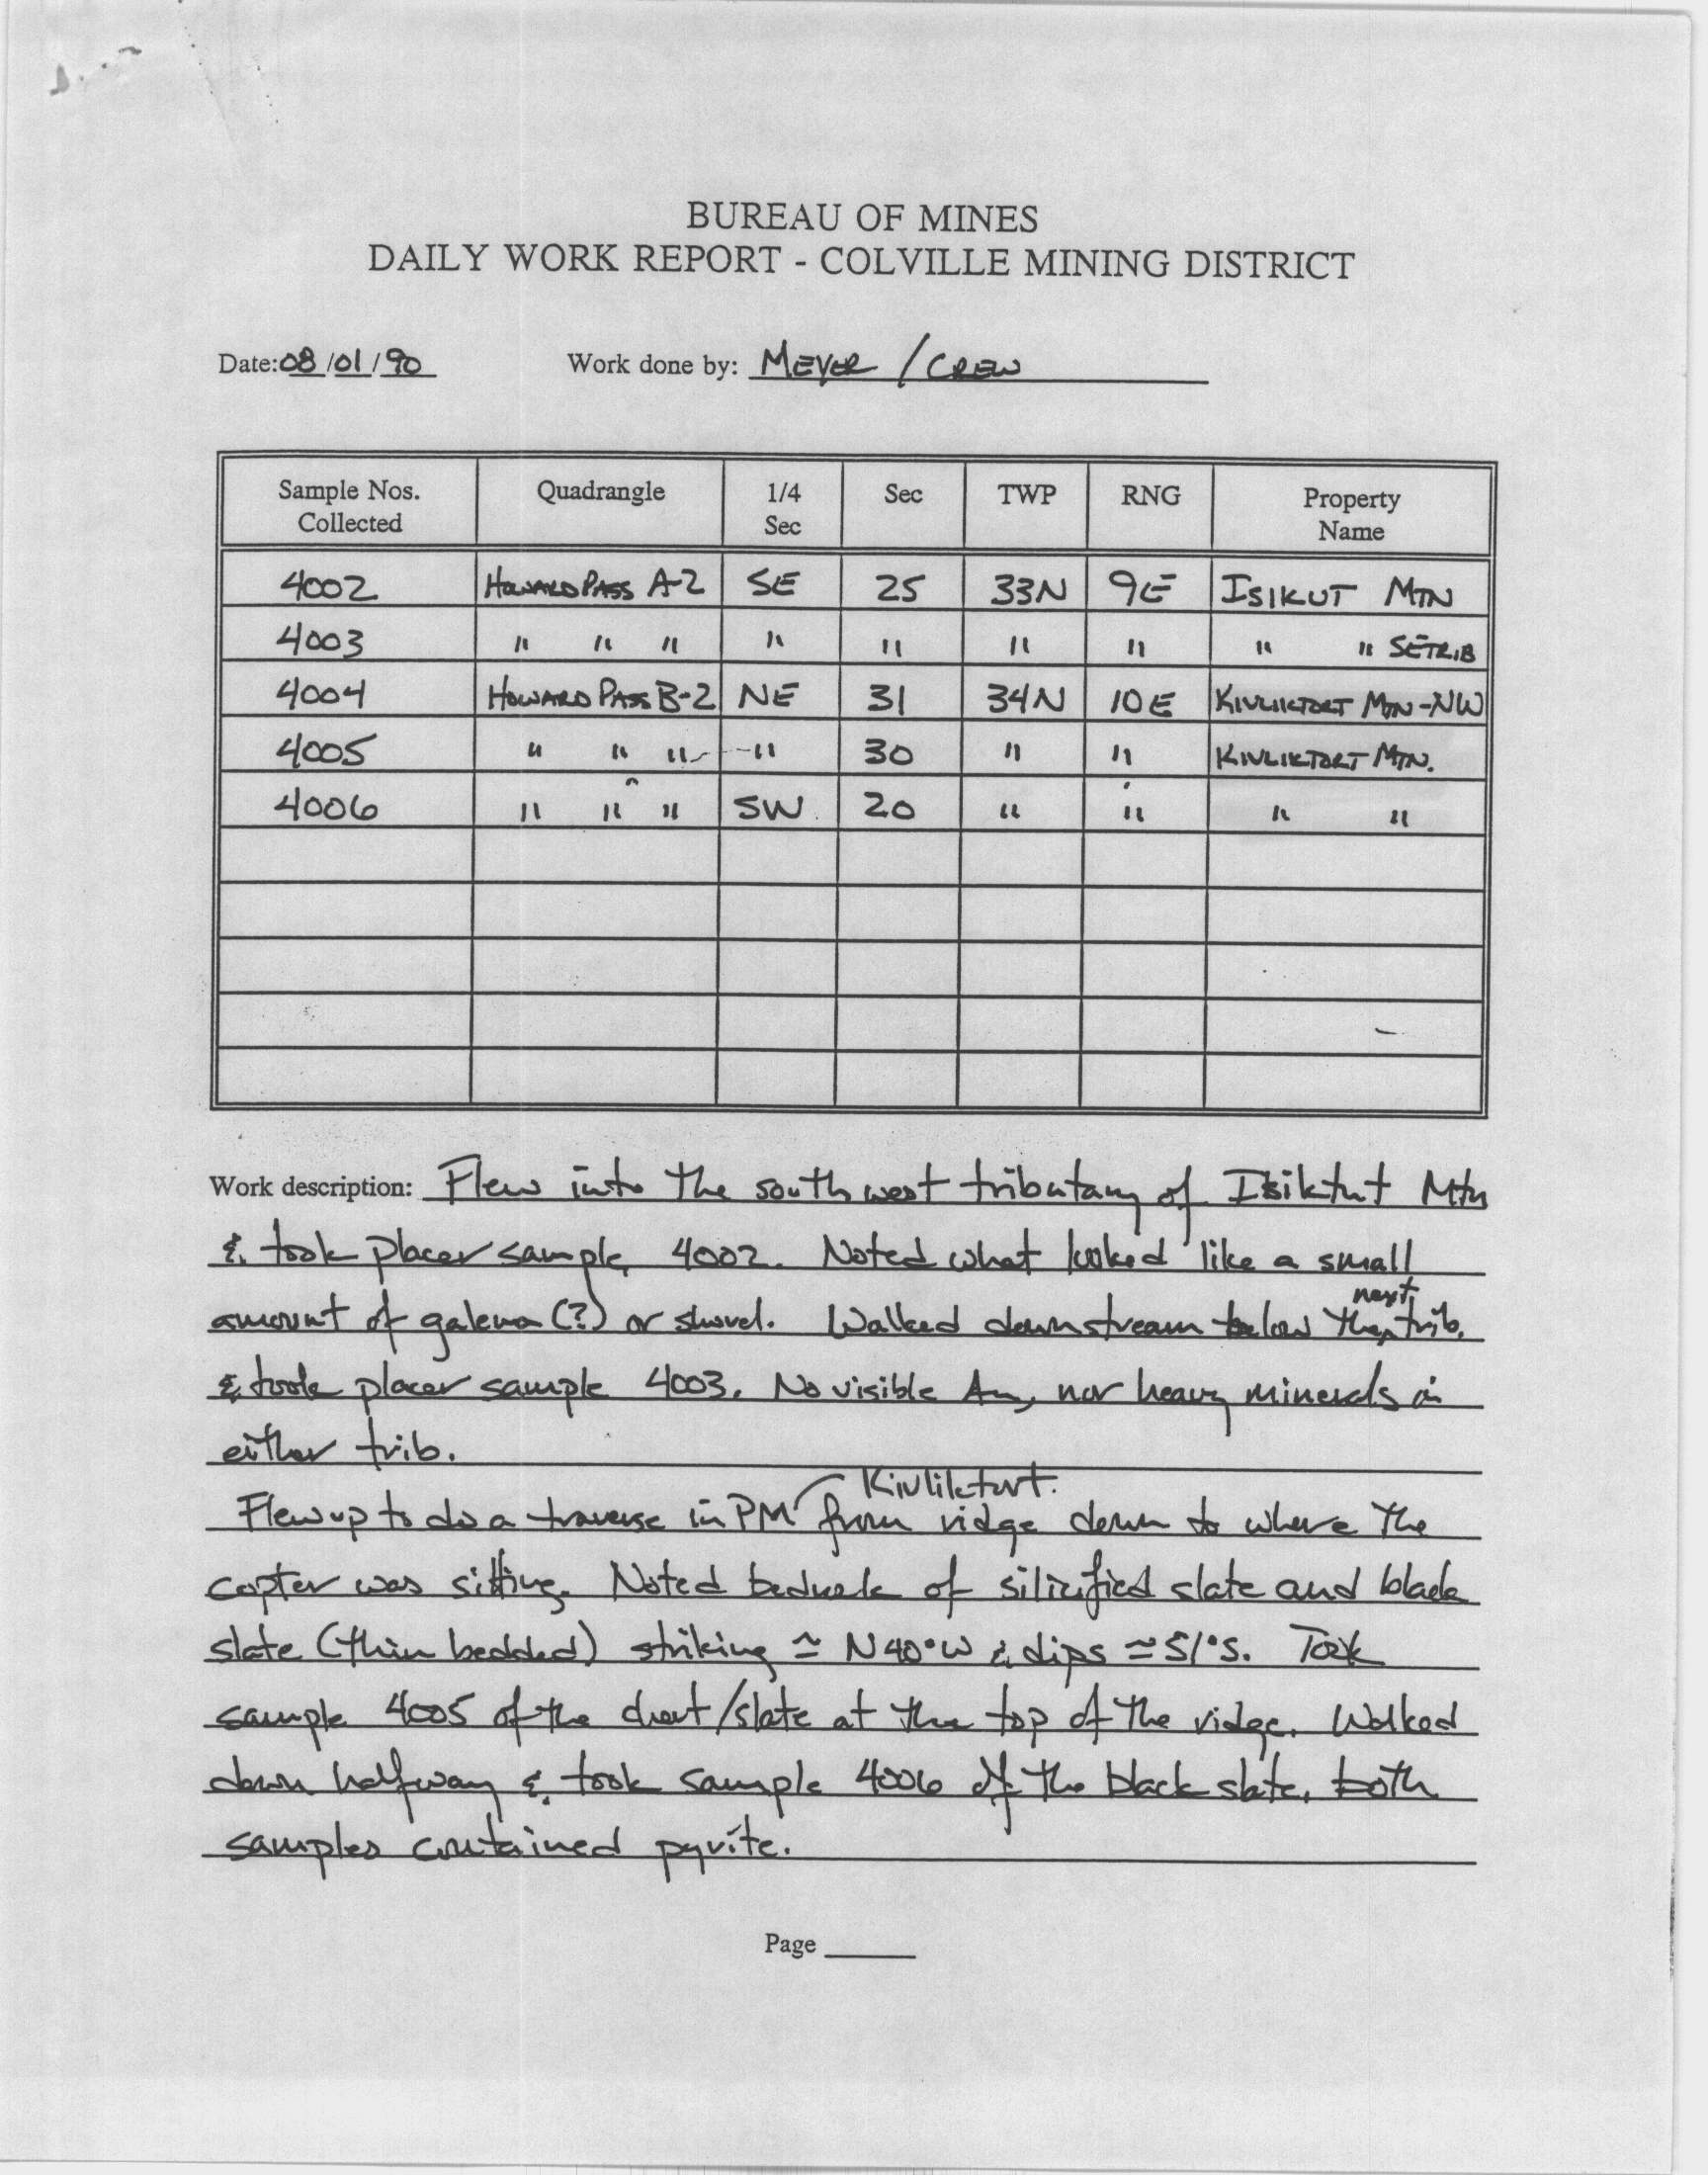 BUREAU OF MINES
DAILY WORK REPORT - COLVILLE MINING DISTRICT
Date: 08/01/90 Work done by: MEYER / CREW
Sample Nos. Collected Quadrangle 1/4 Sec Sec TWP RNG Property Name
4002 HOWARD PASS A-2 SE 25 33N 9E ISIKUT MTN
4003 " " " " " " " " " SE TRIB
4004 HOWARD PASS B-2 NE 31 34N 10E KIVLIKTORT MTN-NW
4005 " " " " 30 " " KIVLIKTORT MTN.
4006 " " " SW 20 " " " "
Work description: Flew into the southwest tributary of Isiktut Mtn
& took placer sample 4002. Noted what looked like a small
amount of galena (?) or shovel. Walked downstream below the next trib.
& took placer sample 4003. No visible Au, nor heavy minerals in
either trib.
Flew up to do a traverse in PM from Kivliktort ridge down to where the
copter was sitting. Noted bedrock of silicified slate and black
slate (thin bedded) striking ≃ N40°W & dips ≃ 51°S. Took
sample 4005 of the chert/slate at the top of the ridge. Walked
down halfway & took sample 4006 of the black slate, both
samples contained pyrite.
Page